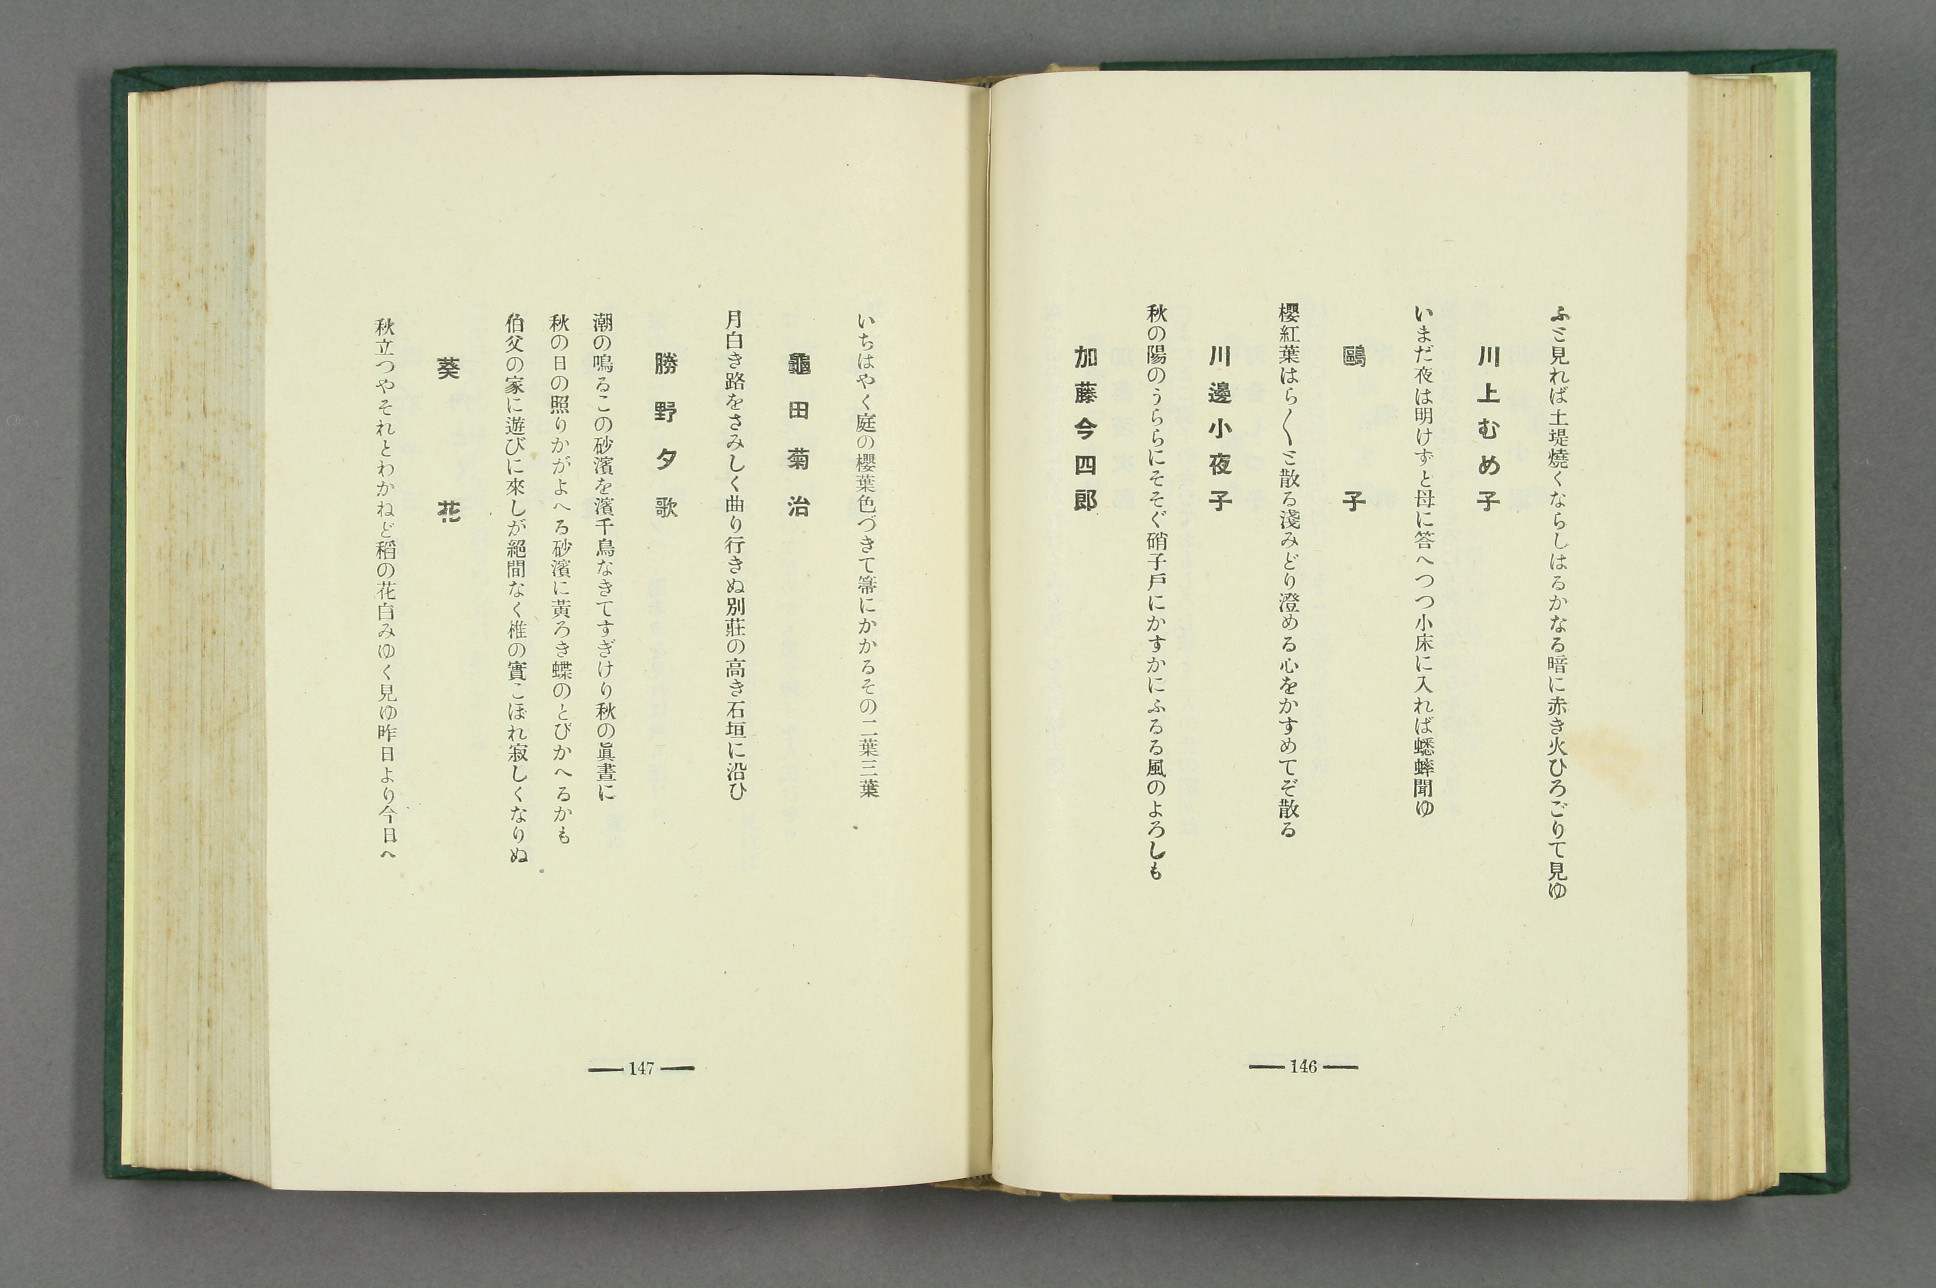 ふと見れば土堤燒くならしはるかなる暗に赤き火ひろごりて見ゆ
川上むめ子
いまだ夜は明けずと母に答へつつ小床に入れば蟋蟀聞ゆ
鷗子
櫻紅葉はら〱と散る淺みどり澄める心をかすめてぞ散る
川邊小夜子
秋の陽のうららにそそぐ硝子戸にかすかにふるる風のよろしも
加藤今四郎
— 146 —
いちはやく庭の櫻葉色づきて箒にかかるその二葉三葉
龜田菊治
月白き路をさみしく曲り行きぬ別莊の高き石垣に沿ひ
勝野夕歌
潮の鳴るこの砂濱を濱千鳥なきてすぎけり秋の眞晝に
秋の日の照りかがよへる砂濱に黃ろき蝶のとびかへるかも
伯父の家に遊びに來しが絕間なく椎の實こぼれ寂しくなりぬ
葵花
秋立つやそれとわかねど稻の花白みゆく見ゆ昨日より今日へ
— 147 —